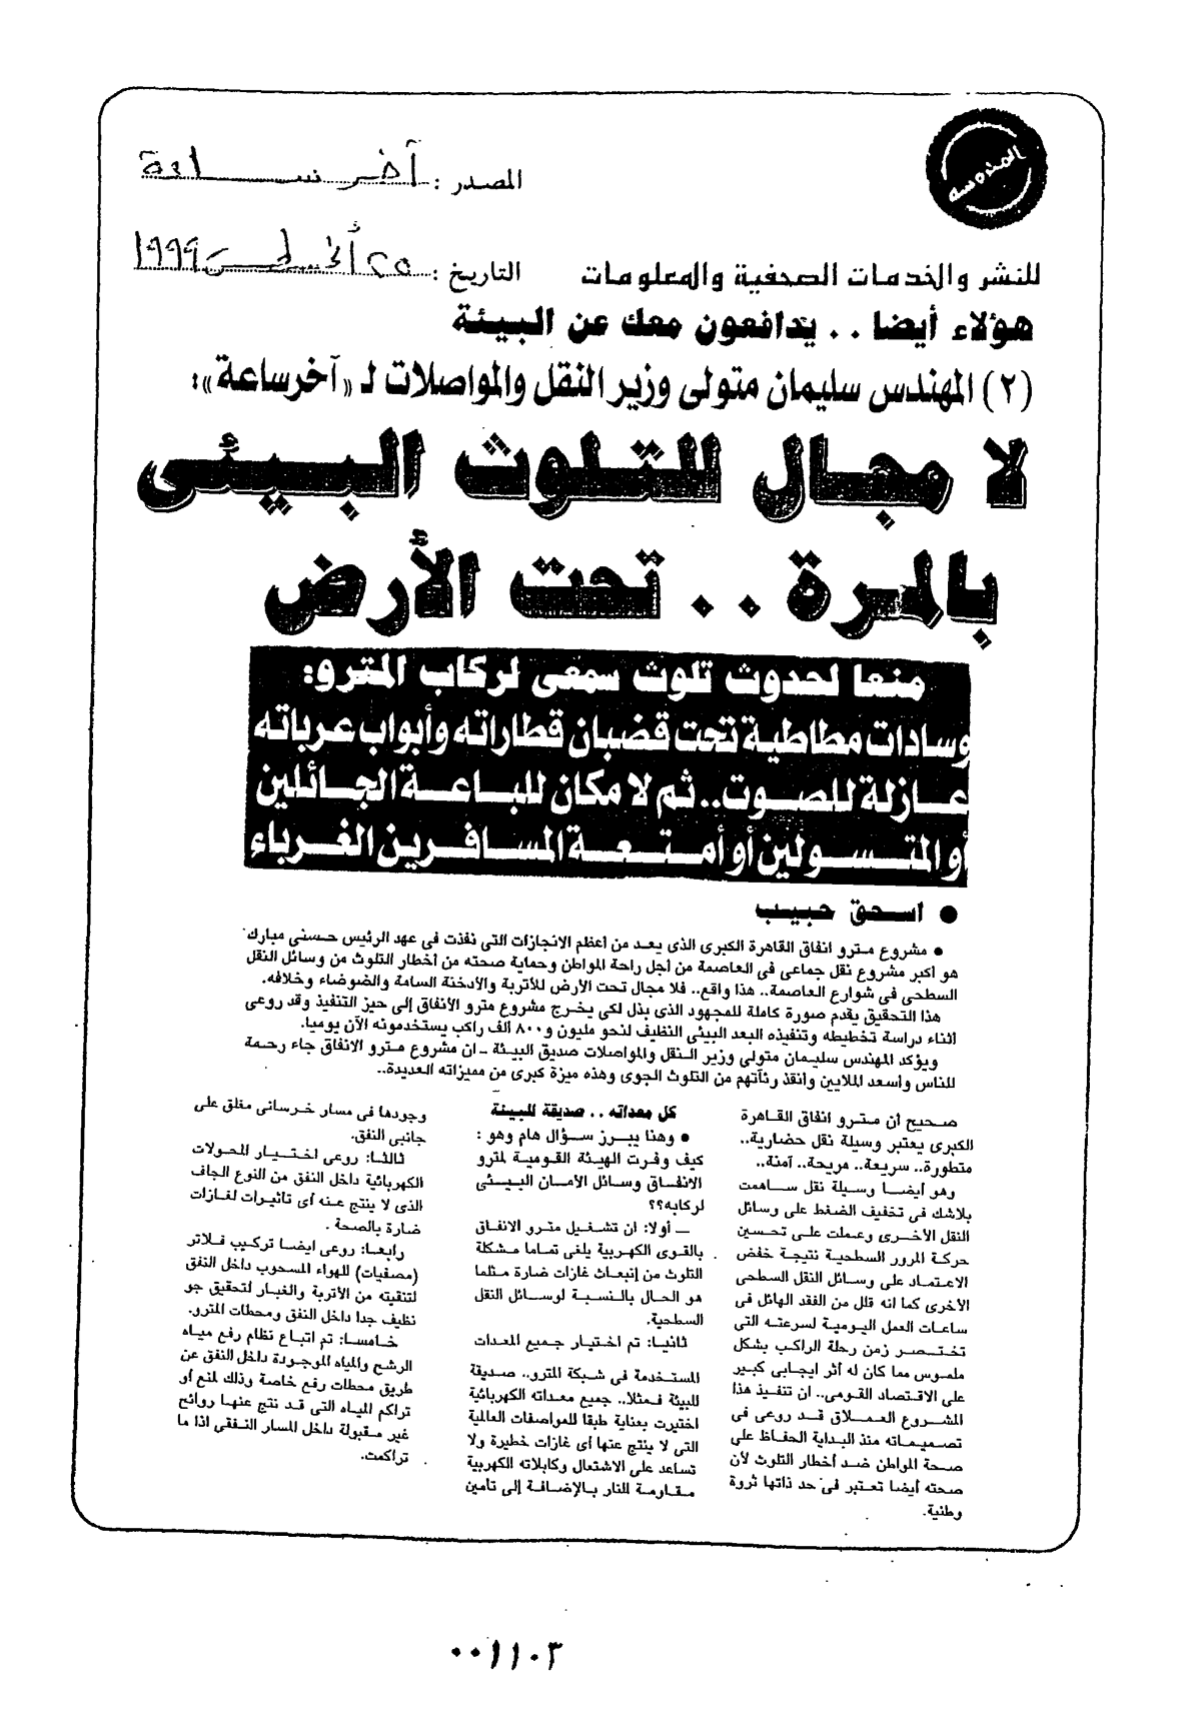 المحروسة
المصدر : آخر ساعة
للنشر والخدمات الصحفية والمعلومات
التاريخ : ٢٥ أغسطس ١٩٩٩
هؤلاء أيضا . . يدافعون معك عن البيئة
(٢) المهندس سليمان متولى وزير النقل والمواصلات لـ «آخر ساعة»:
لا مجال للتلوث البيئى
بالمرة . . تحت الأرض
منعا لحدوث تلوث سمعى لركاب المترو:
وسادات مطاطية تحت قضبان قطاراته وأبواب عرباته
عازلة للصوت.. ثم لا مكان للباعة الجائلين
أو المتسولين أو أمتعة المسافرين الغرباء
● اسحق حبيب
● مشروع مترو انفاق القاهرة الكبرى الذى يعد من أعظم الانجازات التى نفذت فى عهد الرئيس حسنى مبارك
هو اكبر مشروع نقل جماعى فى العاصمة من أجل راحة المواطن وحماية صحته من أخطار التلوث من وسائل النقل
السطحى فى شوارع العاصمة.. هذا واقع.. فلا مجال تحت الأرض للأتربة والأدخنة السامة والضوضاء وخلافه.
هذا التحقيق يقدم صورة كاملة للمجهود الذى بذل لكى يخرج مشروع مترو الأنفاق إلى حيز التنفيذ وقد روعى
اثناء دراسة تخطيطه وتنفيذه البعد البيئى النظيف لنحو مليون و٨٠٠ الف راكب يستخدمونه الآن يوميا.
ويؤكد المهندس سليمان متولى وزير النقل والمواصلات صديق البيئة - ان مشروع مترو الانفاق جاء رحمة
للناس واسعد الملايين وانقذ رئاتهم من التلوث الجوى وهذه ميزة كبرى من مميزاته العديدة..
صحيح أن مترو انفاق القاهرة
الكبرى يعتبر وسيلة نقل حضارية..
متطورة.. سريعة.. مريحة.. آمنة..
وهو أيضا وسيلة نقل ساهمت
بلاشك فى تخفيف الضغط على وسائل
النقل الأخرى وعملت على تحسين
حركة المرور السطحية نتيجة خفض
الاعتماد على وسائل النقل السطحى
الأخرى كما انه قلل من الفقد الهائل فى
ساعات العمل اليومية لسرعته التى
تختصر زمن رحلة الراكب بشكل
ملموس مما كان له أثر ايجابى كبير
على الاقتصاد القومى.. ان تنفيذ هذا
المشروع العملاق قد روعى فى
تصميماته منذ البداية الحفاظ على
صحة المواطن ضد أخطار التلوث لأن
صحته أيضا تعتبر فى حد ذاتها ثروة
وطنية.
كل معداته . . صديقة للبيئة
● وهنا يبرز سؤال هام وهو :
كيف وفرت الهيئة القومية لمترو
الانفاق وسائل الأمان البيئى
لركابه؟؟
ــ أولا: ان تشغيل مترو الانفاق
بالقوى الكهربية يلغى تماما مشكلة
التلوث من إنبعاث غازات ضارة مثلما
هو الحال بالنسبة لوسائل النقل
السطحية.
ثانيا: تم اختيار جميع المعدات
المستخدمة فى شبكة المترو.. صديقة
للبيئة فمثلا.. جميع معداته الكهربائية
اختيرت بعناية طبقا للمواصفات العالمية
التى لا ينتج عنها أى غازات خطيرة ولا
تساعد على الاشتعال وكابلاته الكهربية
مقاومة للنار بالإضافة إلى تأمين
وجودها فى مسار خرسانى مغلق على
جانبى النفق.
ثالثا: روعى اختيار المحولات
الكهربائية داخل النفق من النوع الجاف
الذى لا ينتج عنه أى تاثيرات لغازات
ضارة بالصحة .
رابعا: روعى ايضا تركيب فلاتر
(مصفيات) للهواء المسحوب داخل النفق
لتنقيته من الأتربة والغبار لتحقيق جو
نظيف جدا داخل النفق ومحطات المترو.
خامسا: تم اتباع نظام رفع مياه
الرشح والمياه الموجودة داخل النفق عن
طريق محطات رفع خاصة وذلك لمنع أو
تراكم المياه التى قد نتج عنها روائح
غير مقبولة داخل المسار النفقى اذا ما
تراكمت.
٠٠١١٠٣